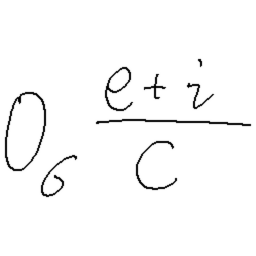 0_6 \frac{e+i}{C}